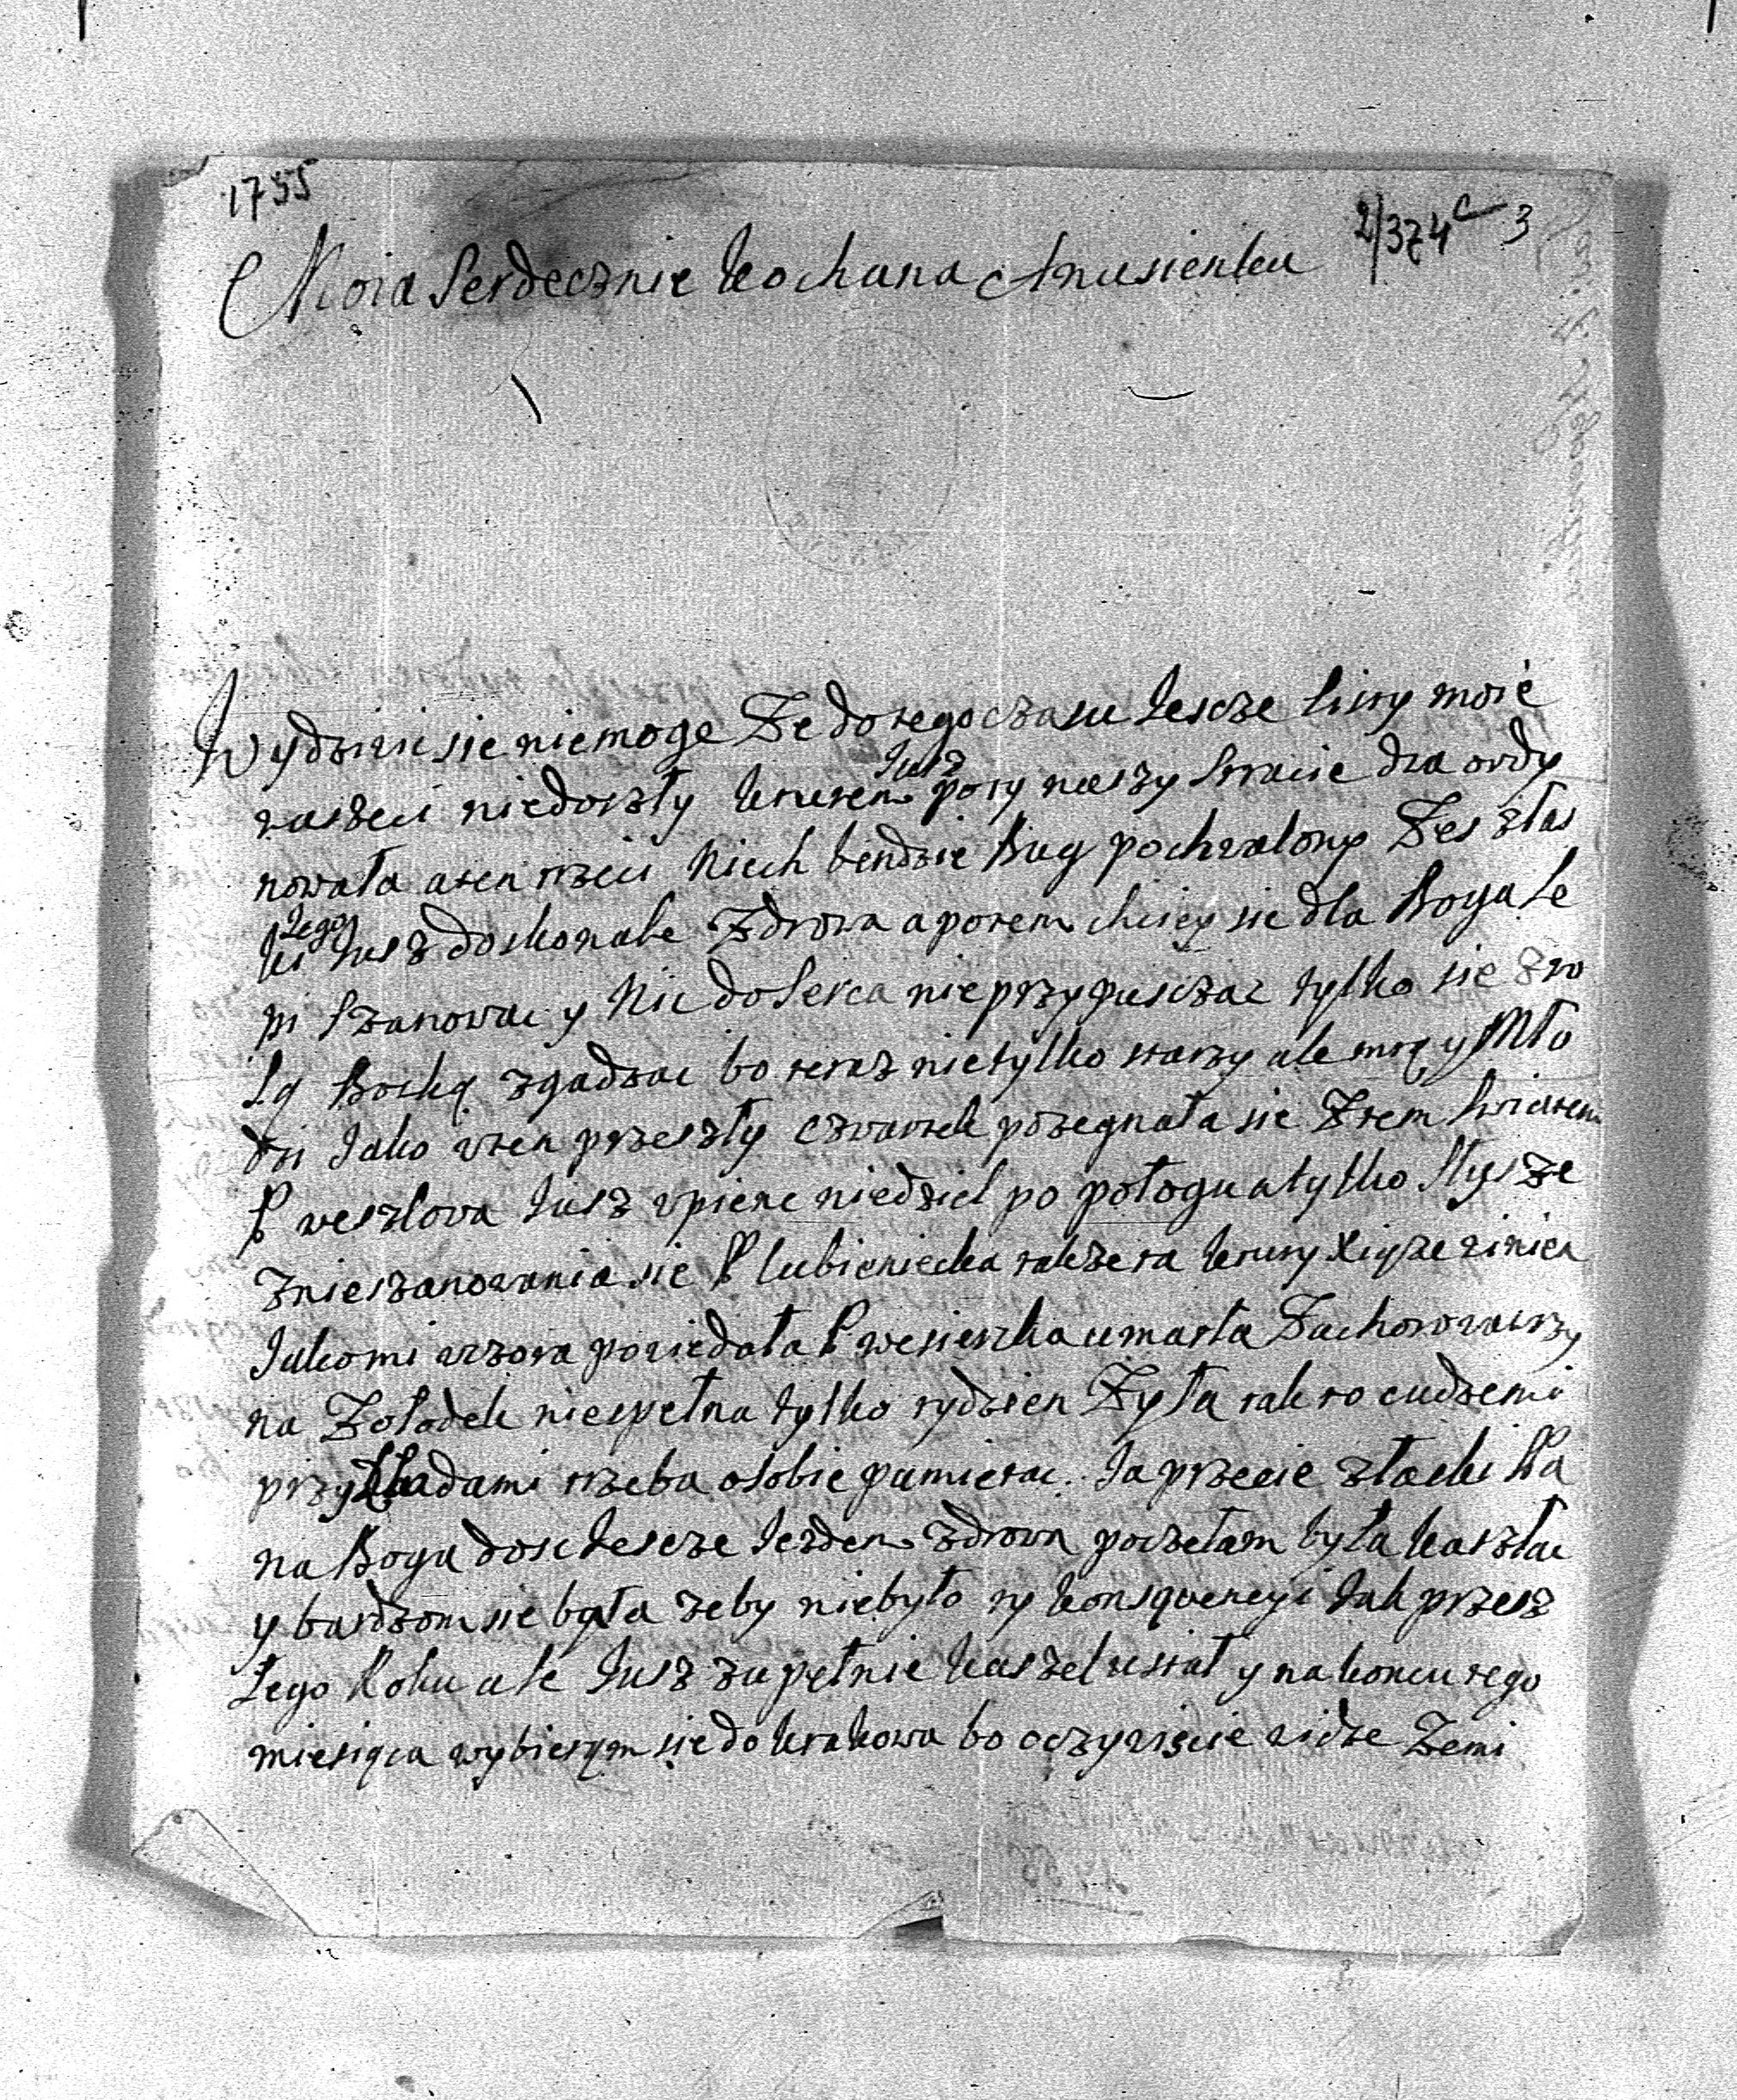 1755
2/374 c 3
Moia Serdecznie kochana Anusienku
Wydziwic sie niemoge Ze do tego czasu Iescze listy moie
waszeci niedoszły kturem Iusz pory naszy stracie dla ordy
nowała aten rzeci Niech bendzie Bug pochwalony Zes ztas
ki Iego Iusz doskonale Zdrowa a potem chciey sie dla Boga Le
pi Szanowac y Nic do Serca nie przypusczac tylko sie z wo
lą Boską zgadzac bo teraz nie tylko starzy ale mrą y Mło
dzi Iako w ten przeszły czwartek pozegnała sie Z tem Swiatem
P weszlowa Iusz w piene niedziel po połogu a tylko Słysze
z nieszanowania sie P lubieniecka takze ta ktury Xiąze winien
Iako mi wzowa powiedała P wesierska umarła Zachorowawszy
na Zoładek niespełna tylko tydzien Zyła tak to cudzemi
przykładami trzeba o sobie pamietac. Ia przecie z łaski Pa
na Boga dosc Iescze Iezdem zdrowa poczełam była kaszlac
y bardzom sie bała zeby niebyło ty konsquencyi Iak przesz
łego Roku ale Iusz zupełnie kaszel ustał y na koncu tego
miesiąca wybieram sie do krakowa bo oczywiscie widze Ze mi